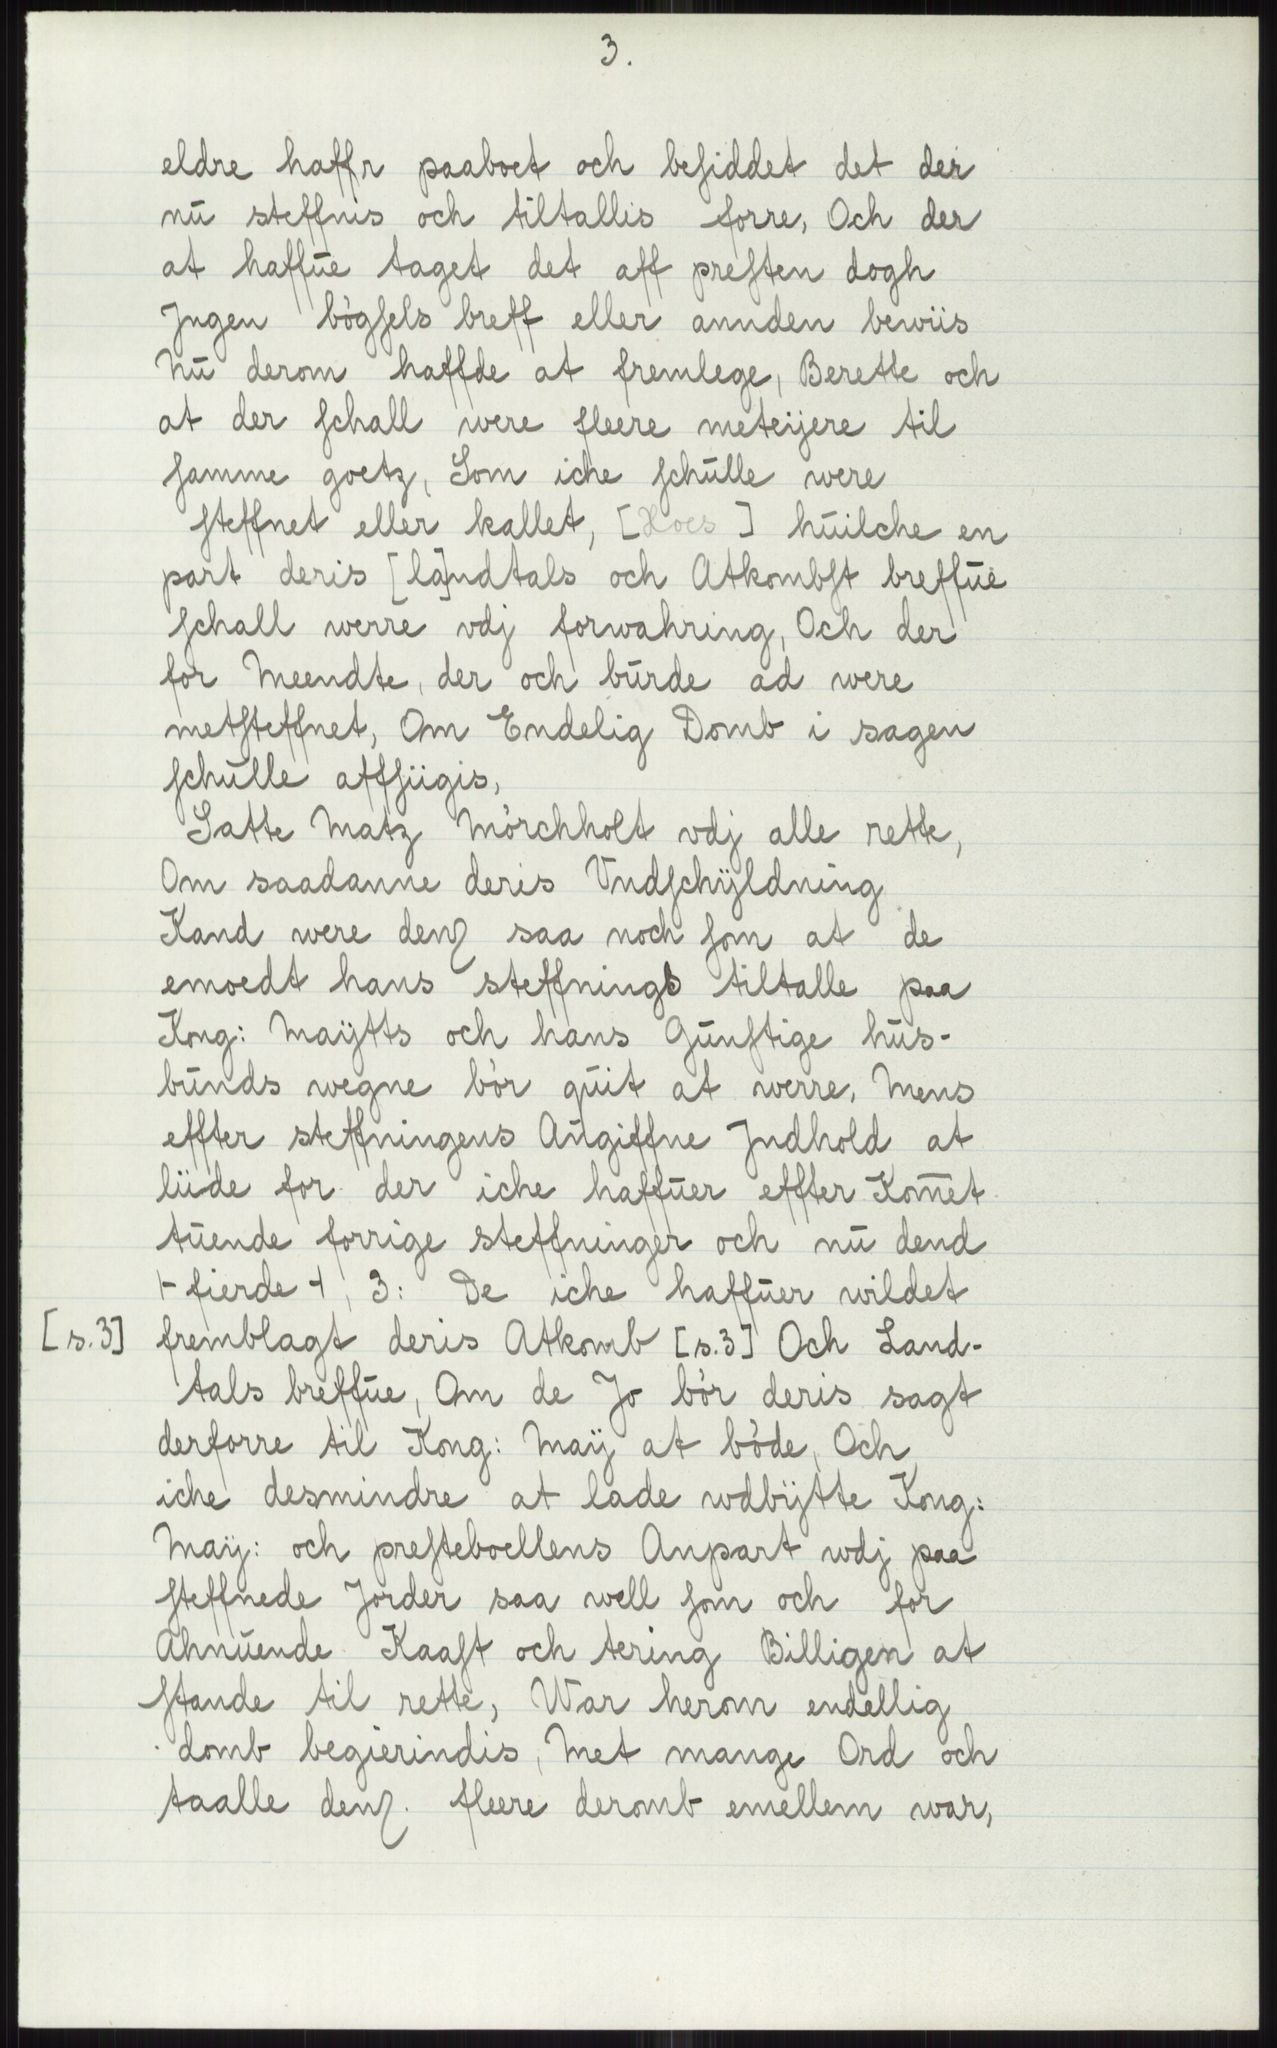 3.
eldre haffr paaboet och besiddet det der
nū steffnis och tiltallis forre, Och der
at haffūe taget det aff presten dogh
Jngen bògsels breff eller annden bewiis
Nū derom haffde at fremlege, Berette och
at der schall were fleere meteijere til
samme goetz, Som iche schūlle were
steffnet eller kallet, [Hoes] hūilche en
part deris [la]ndtals och Atkombst breffūe
schall werre vdj forwahring, Och der
for Meendte, der och būrde ad were
metsteffnet, Om Endelig Domb i sagen
schūlle affsiigis,
Satte Matz Mòrchholt vdj alle rette,
Om saadanne deris Vndschijldning
Kand were denȝ saa noch som at de
emoedt hans steffnings tiltalle paa
Kong: Maijtts och hans Gūnstige hūs-
būnds wegne bòr qūit at werre, Mens
effter steffningens Angiffne Jndhold at
liide for der iche haffūer effter Kom̄et
tūende forrige steffninger och nū dend
⊢fierde⊣, 3: De iche haffūer wildet
[s.3] fremblagt deris Atkomb [s.3] Och Land-
tals breffūe, Om de Jo bòr deris sagt
derforre til Kong: Maij at bòde, Och
iche desmindre at lade wdbijtte Kong:
Maij: och presteboellens Anpart wdj paa
steffnede Jorder saa well som och for
Ahnūende Kaast och tering Billigen at
stande til rette, War herom endellig
domb begierindis, Met mange Ord och
taalle denȝ. fleere deromb emellem war,